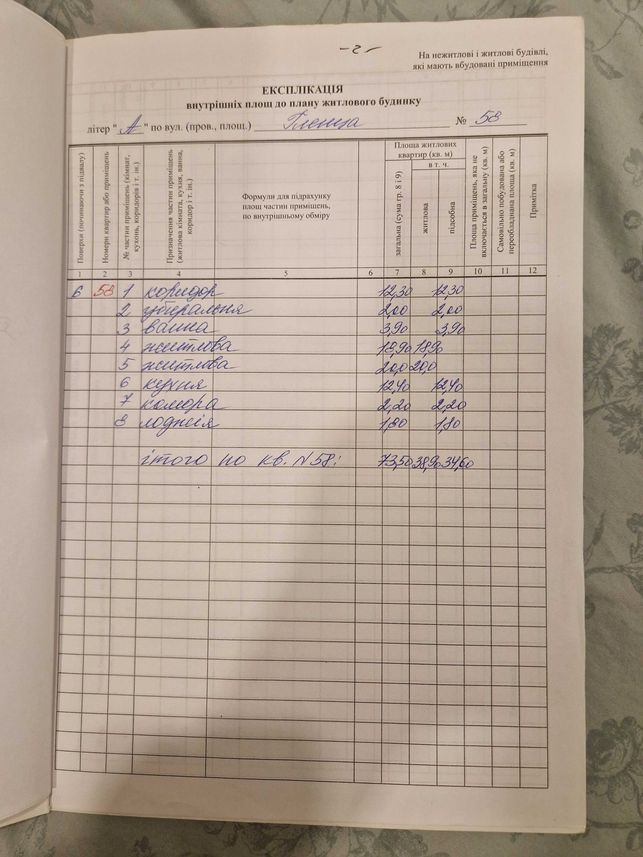 -2-
На нежитлові і житлові будівлі,
які мають вбудовані приміщення
ЕКСПЛІКАЦІЯ
внутрішніх площ до плану житлового будинку
літер " А " по вул. (пров., площ.) № 58
Поверхи (починаючи з підвалу)
Номери квартир або приміщень
№ частин приміщень (кімнат, кухонь, коридорів і т. ін.)
Призначення частин приміщень (житлова кімната, кухня, ванна, коридор і т. ін.)
Формули для підрахунку
площ частин приміщень,
по внутрішньому обміру
Площа житлових
квартир (кв. м)
загальна (сума гр. 8 і 9)
в т. ч.
житлова
підсобна
Площа приміщень, яка не включається в загальну (кв. м)
Самовільно побудована або переобладнана площа (кв. м)
Примітка
1 2 3 4 5 6 7 8 9 10 11 12
6 58 1 коридор 12,30 12,30
2 убіральня 2,00 2,00
3 ванна 3,90 3,90
4 житлова 18,90 18,90
5 житлова 20,0 20,0
6 кухня 12,40 12,40
7 комора 2,20 2,20
8 лоджія 1,80 1,80
ітого по кв. N 58: 73,50 38,90 34,60